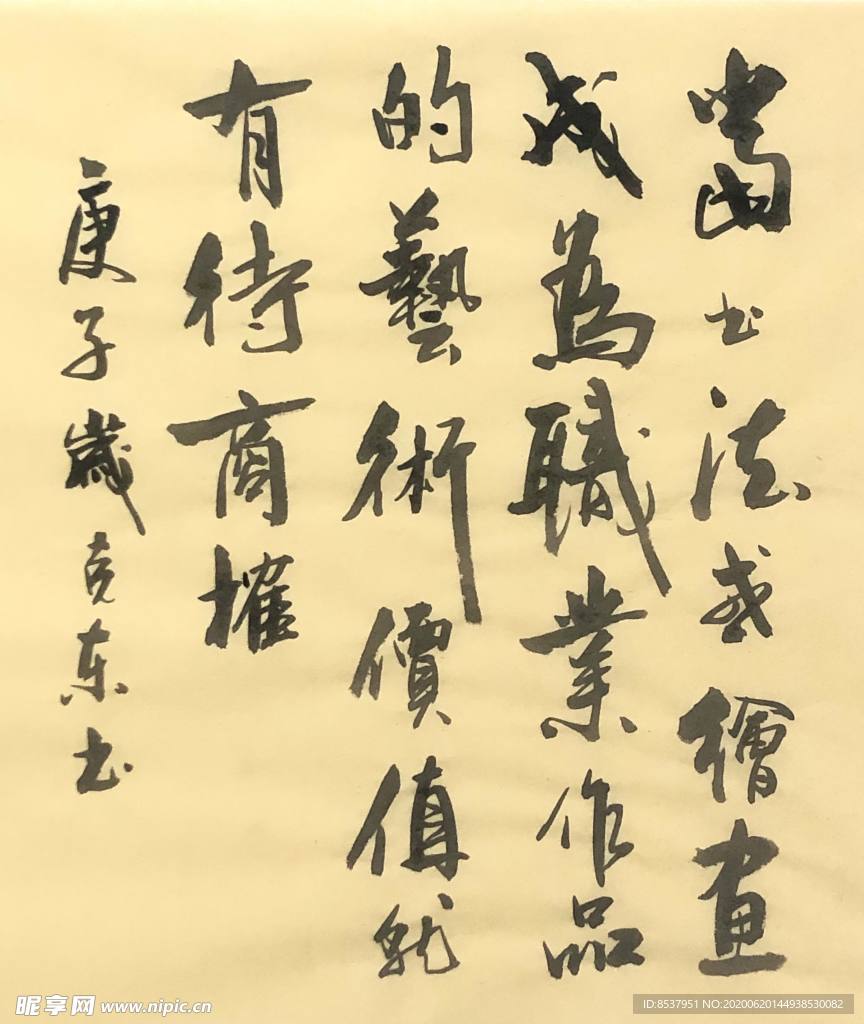 當书法或繪畫
成為職業作品
的藝術價值就
有待商榷
庚子歲克东书
昵享网 www.nipic.cn
ID:8537951 NO:20200620144938530082